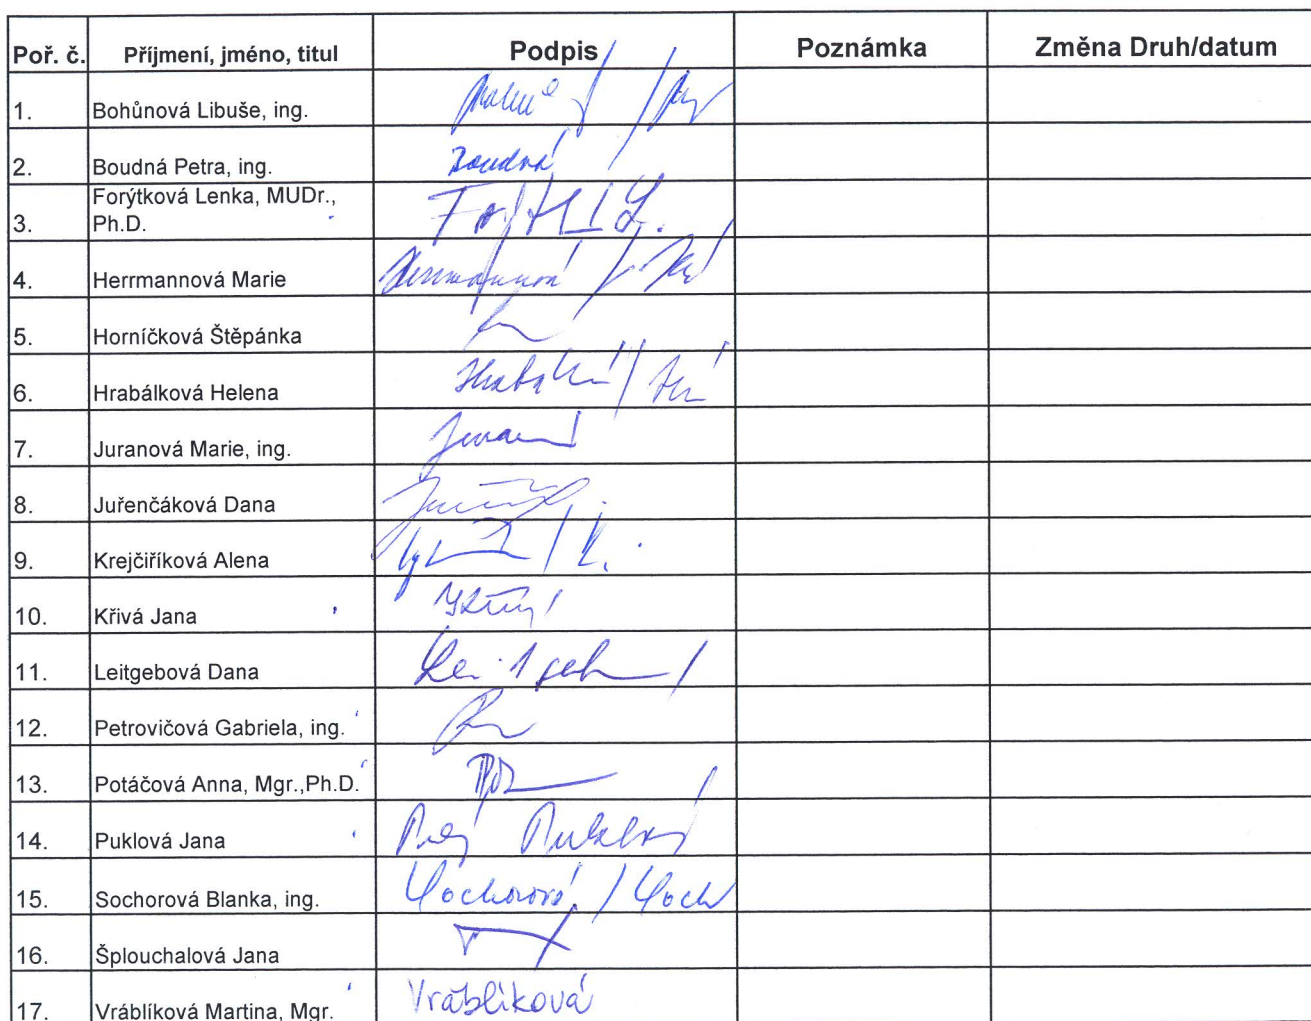 Poř. č. Příjmení, jméno, titul Podpis Poznámka Změna Druh/datum
1. Bohůnová Libuše, ing.
2. Boudná Petra, ing. Boudná
Forýtková Lenka, MUDr.,
3. Ph.D.
4. Herrmannová Marie Herrmannová
5. Horníčková Štěpánka
6. Hrabálková Helena
7. Juranová Marie, ing.
8. Juřenčáková Dana
9. Krejčiříková Alena
10. Křivá Jana
11. Leitgebová Dana
12. Petrovičová Gabriela, ing.
13. Potáčová Anna, Mgr.,Ph.D.
14. Puklová Jana Puklová
15. Sochorová Blanka, ing. Sochorová / Soch
16. Šplouchalová Jana
17. Vráblíková Martina, Mgr. Vráblíková